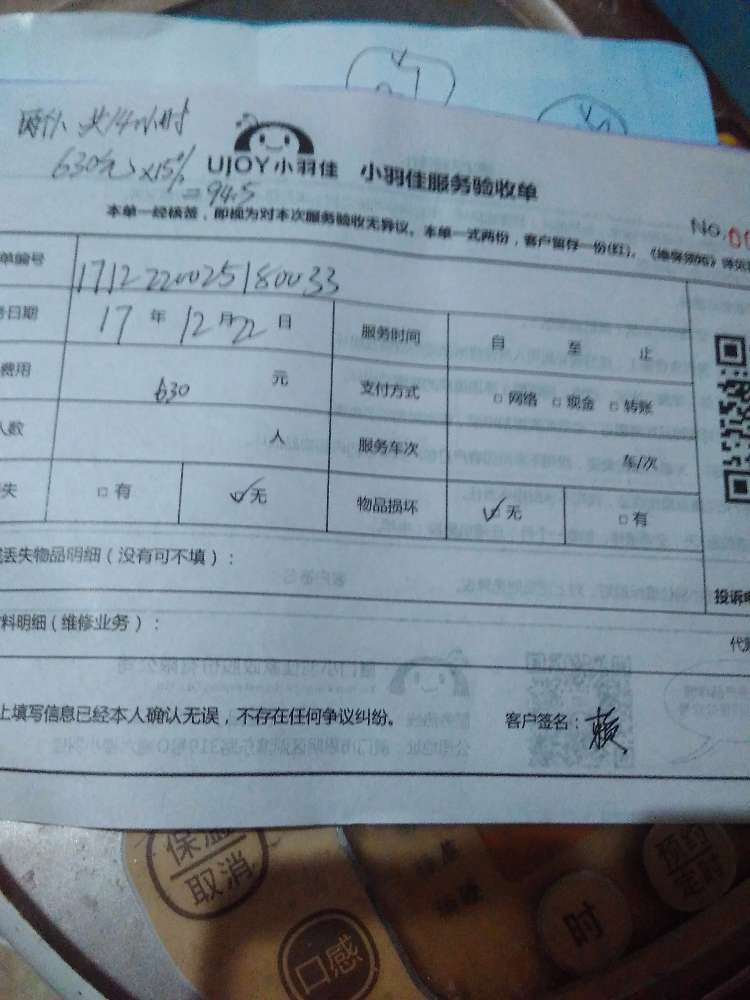 共14小时
630元×15%
=94.5
UJOY小羽佳 小羽佳服务验收单
No.
本单一经核签，即视为对本次服务验收无异议。本单一式两份，客户留存一份(红)。
单编号 1712220025180033
务日期 17 年 12 月 22 日 服务时间 自 至 止
费用 630 元 支付方式 □ 网络 □ 现金 □ 转账
人数 人 服务车次 车/次
失 □ 有 ☑ 无 物品损坏 ☑ 无 □ 有
丢失物品明细（没有可不填）：
投诉电
料明细（维修业务）：
上填写信息已经本人确认无误，不存在任何争议纠纷。 客户签名：赖
保温
取消
口感
时
预约
定时